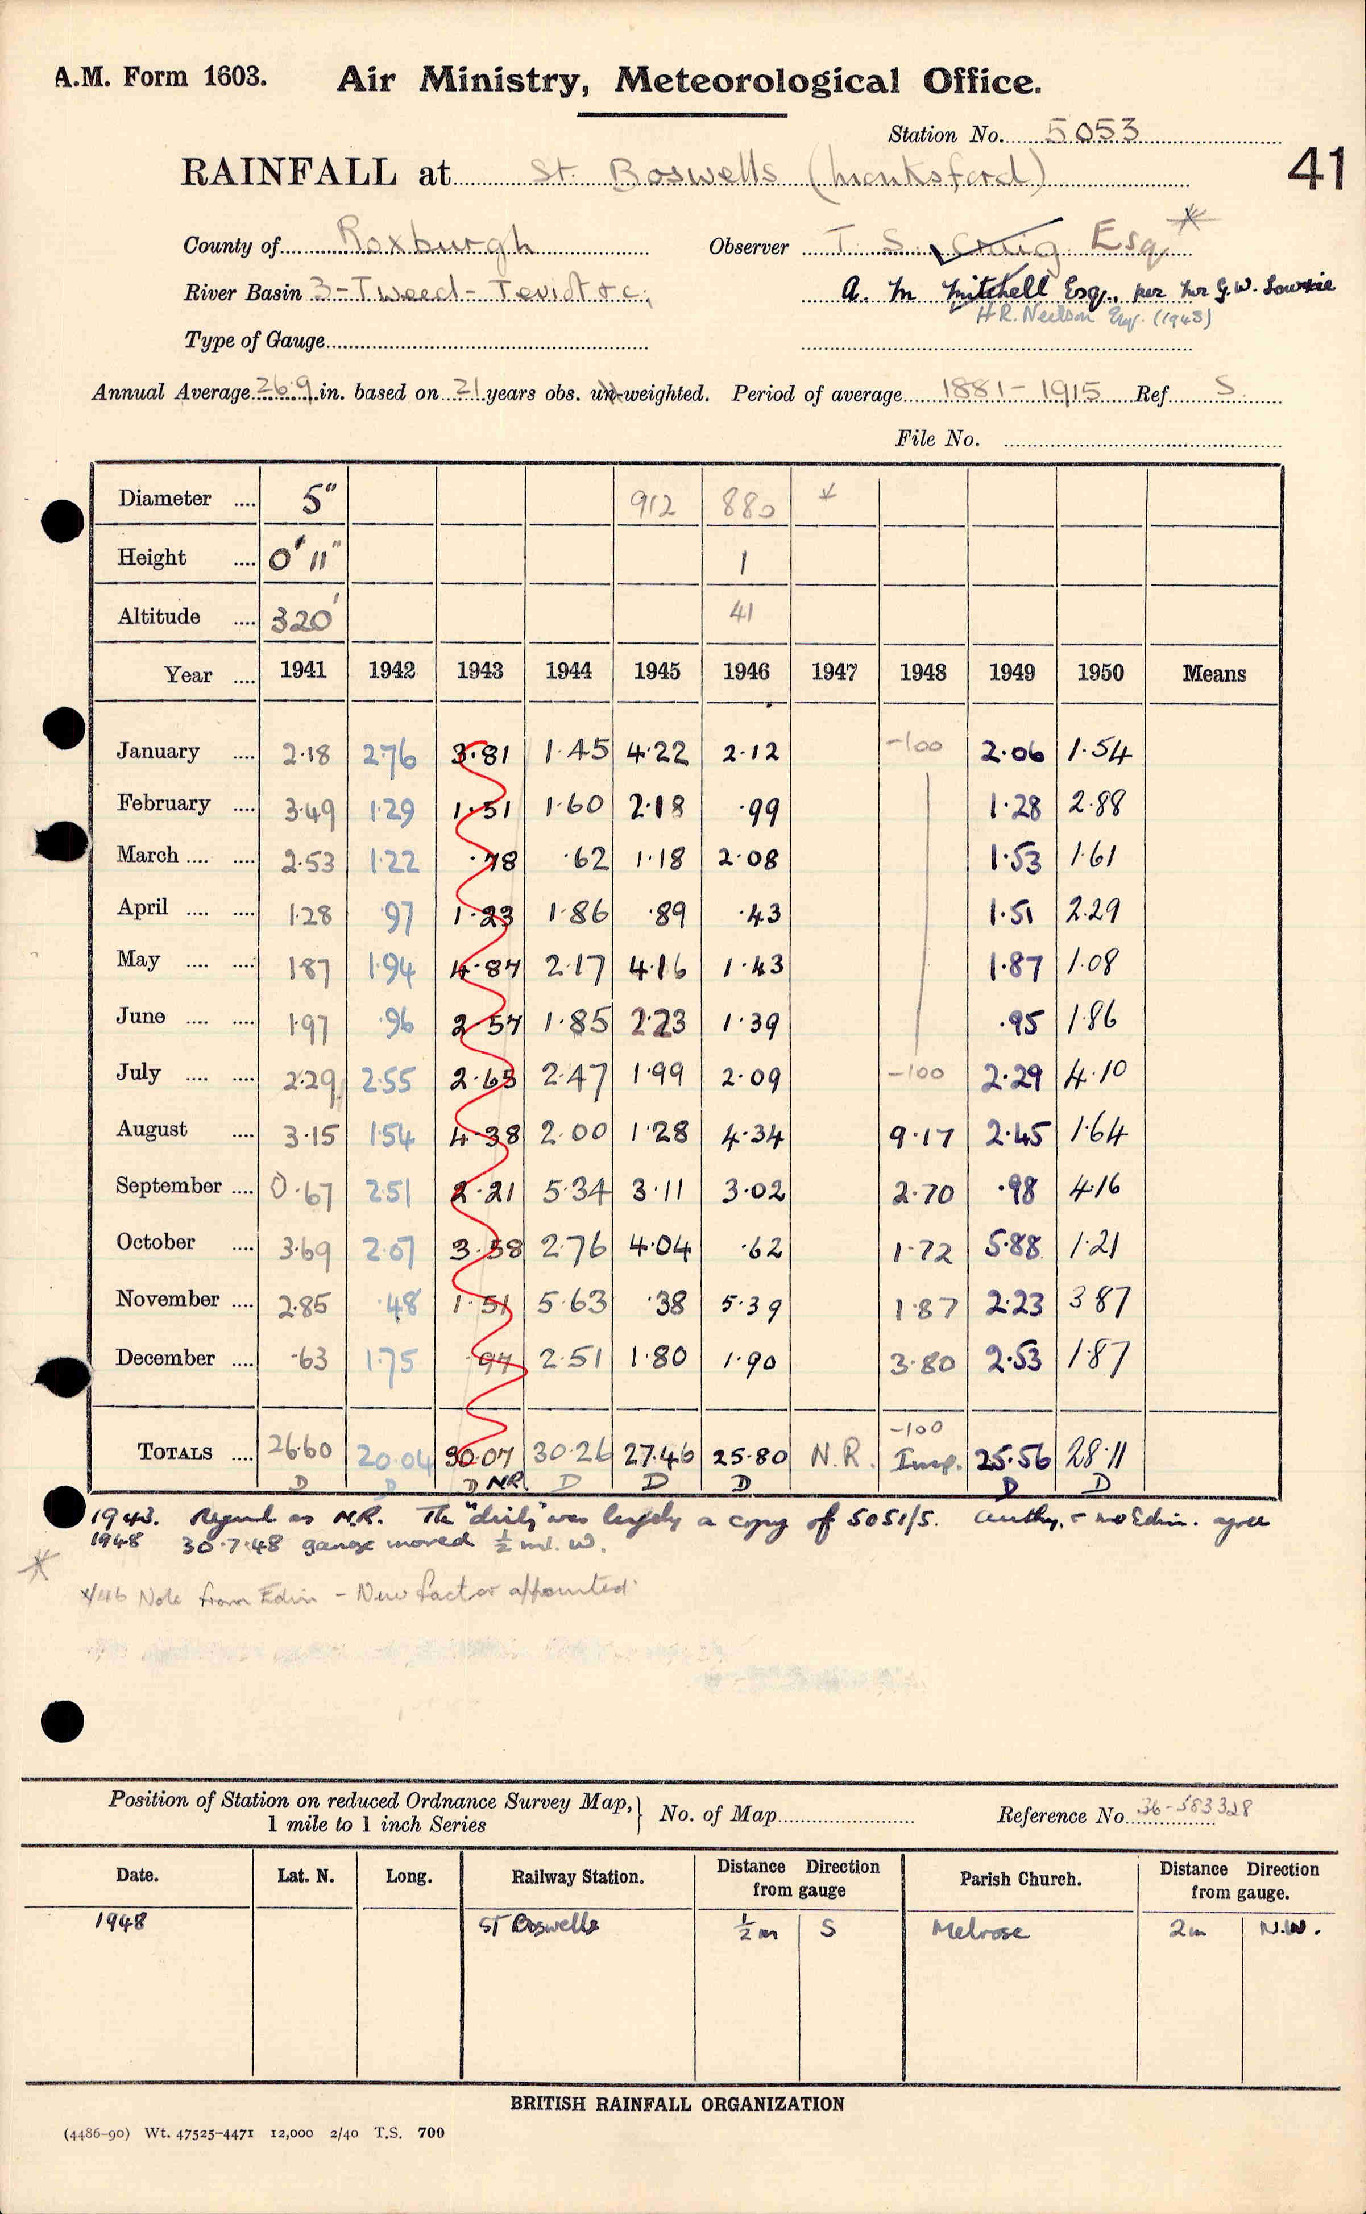 A.M. Form 1603. Air Ministry, Meteorological Office.
Station No. 5053
41
RAINFALL at St. Boswells (Monksford)
County of Roxburgh Observer T. S. Craig Esq *
River Basin 3-Tweed-Teviot &c, A. M. Mitchell Esq., per Mr G.W. Lowrie
H.R. Neilson Esq. (1948)
Type of Gauge
Annual Average 26.9 in. based on 21 years obs. un-weighted. Period of average 1881-1915 Ref S.
File No.
Diameter .... 5" 912 880 *
Height .... 0' 11" 1
Altitude .... 320' 41
Year .... 1941 1942 1943 1944 1945 1946 1947 1948 1949 1950 Means
January .... 2.18 2.76 3.81 1.45 4.22 2.12 -100 2.06 1.54
February .... 3.49 1.29 1.51 1.60 2.18 .99 1.28 2.88
March .... .... 2.53 1.22 .78 .62 1.18 2.08 1.53 1.61
April .... .... 1.28 .97 1.23 1.86 .89 .43 1.51 2.29
May .... .... 1.87 1.94 4.87 2.17 4.16 1.43 1.87 1.08
June .... .... 1.97 .96 2.57 1.85 2.23 1.39 .95 1.86
July .... .... 2.29 2.55 2.65 2.47 1.99 2.09 -100 2.29 4.10
August .... 3.15 1.54 4.38 2.00 1.28 4.34 9.17 2.45 1.64
September .... 0.67 2.51 2.21 5.34 3.11 3.02 2.70 .98 4.16
October .... 3.69 2.07 3.58 2.76 4.04 .62 1.72 5.88 1.21
November .... 2.85 .48 1.51 5.63 .38 5.39 1.87 2.23 3.87
December .... .63 1.75 .97 2.51 1.80 1.90 3.80 2.53 1.87
-100
TOTALS .... 26.60 20.04 30.07 30.26 27.46 25.80 N.R. Insp. 25.56 28.11
D D D NR. D D D D D
1943. Regard as N.R. The "daily" was largely a copy of 5051/5. Authy. & MO Edin. agree
1948 30.7.48 gauge moved ½ ml. W.
*
Note from Edin - New factor appointed.
Position of Station on reduced Ordnance Survey Map,} No. of Map Reference No. 36-583328
1 mile to 1 inch Series
Date. Lat. N. Long. Railway Station. Distance Direction from gauge Parish Church. Distance Direction from gauge.
1948 St Boswells ½ m S Melrose 2m N.W.
BRITISH RAINFALL ORGANIZATION
(4486-90) Wt. 47525-4471 12,000 2/40 T.S. 700